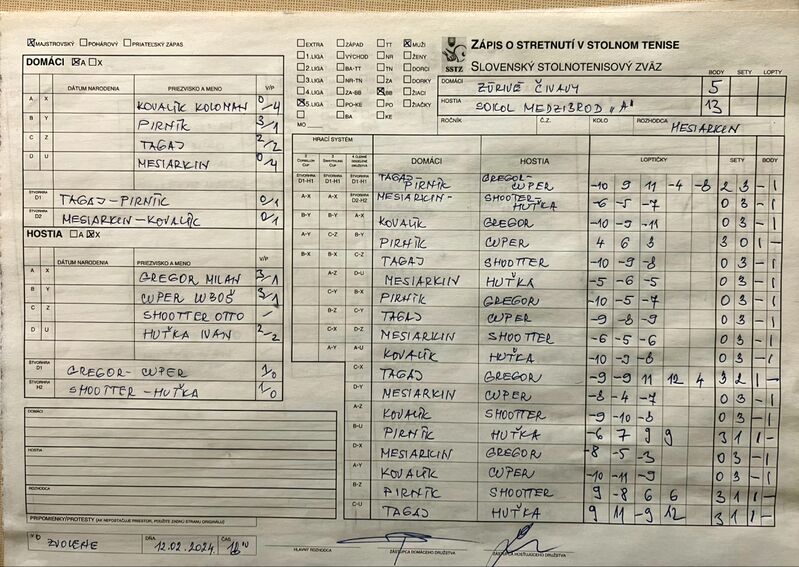 MAJSTROVSKÝ POHÁROVÝ PRIATEĽSKÝ ZÁPAS
DOMÁCI A X
DÁTUM NARODENIA PRIEZVISKO A MENO V/P
A X KOVALÍK KOLOMAN 0/4
B Y PIRNÍK 3/1
C Z TAGAJ 2/2
D U MESIARKIN 0/4
ŠTVORHRA D1 TAGAJ-PIRNÍK 0/1
ŠTVORHRA D2 MESIARKIN-KOVALÍK 0/1
HOSTIA A X
DÁTUM NARODENIA PRIEZVISKO A MENO V/P
A X GREGOR MILAN 3/1
B Y CUPER ĽUBOŠ 3/1
C Z SHOOTTER OTTO –
D U HUŤKA IVAN 2/2
ŠTVORHRA D1 GREGOR-CUPER 1/0
ŠTVORHRA H2 SHOOTTER-HUŤKA 1/0
DOMÁCI
HOSTIA
ROZHODCA
PRIPOMIENKY/PROTESTY (AK NEPOSTAČUJE PRIESTOR, POUŽITE ZADNÚ STRANU ORIGINÁLU)
ZVOLENE DŇA 12.02.2024 ČAS
EXTRA ZÁPAD TT MUŽI
1.LIGA VÝCHOD NR ŽENY
2.LIGA BA-TT TN DORCI
3.LIGA NR-TN ZA DORKY
4.LIGA ZA-BB BB ŽIACI
5.LIGA PO-KE PO ŽIAČKY
BA KE
MO
SSTZ
ZÁPIS O STRETNUTÍ V STOLNOM TENISE
SLOVENSKÝ STOLNOTENISOVÝ ZVÄZ
BODY SETY LOPTY
DOMÁCI ZÚRIVÉ ČIVAVY 5
HOSTIA SOKOL MEDZIBROD „A" 13
ROČNÍK Č.Z. KOLO ROZHODCA MESIARKIN
HRACÍ SYSTÉM
DOMÁCI HOSTIA LOPTIČKY SETY BODY
ŠTVORHRA D1-H1 ŠTVORHRA D1-H1 ŠTVORHRA D1-H1 TAGAJ-PIRNÍK GREGOR-CUPER -10 9 11 -4 -8 2 3 - 1
A-X A-X ŠTVORHRA D2-H2 MESIARKIN- SHOOTTER-HUŤKA -6 -5 -7 0 3 - 1
B-Y B-Y A-X KOVALÍK GREGOR -10 -9 -11 0 3 - 1
A-Y C-Z B-Y PIRNÍK CUPER 4 6 3 3 0 1 -
B-X B-X C-Z TAGAJ SHOOTTER -10 -9 -8 0 3 - 1
A-Z D-U MESIARKIN HUŤKA -5 -6 -5 0 3 - 1
C-Y B-X PIRNÍK GREGOR -10 -5 -7 0 3 - 1
B-Z C-Y TAGAJ CUPER -9 -8 -9 0 3 - 1
C-X D-Z MESIARKIN SHOOTTER -6 -5 -6 0 3 - 1
A-Y A-U KOVALÍK HUŤKA -10 -9 -8 0 3 - 1
C-X TAGAJ GREGOR -9 -9 11 12 4 3 2 1 -
D-Y MESIARKIN CUPER -8 -4 -7 0 3 - 1
A-Z KOVALÍK SHOOTTER -9 -10 -8 0 3 - 1
B-U PIRNÍK HUŤKA -6 7 9 9 3 1 1 -
D-X MESIARKIN GREGOR -8 -5 -3 0 3 - 1
A-Y KOVALÍK CUPER -10 -11 -9 0 3 - 1
B-Z PIRNÍK SHOOTTER 9 -8 6 6 3 1 1 -
C-U TAGAJ HUŤKA 9 11 -9 12 3 1 1 -
HLAVNÝ ROZHODCA ZÁSTUPCA DOMÁCEHO DRUŽSTVA ZÁSTUPCA HOSŤUJÚCEHO DRUŽSTVA